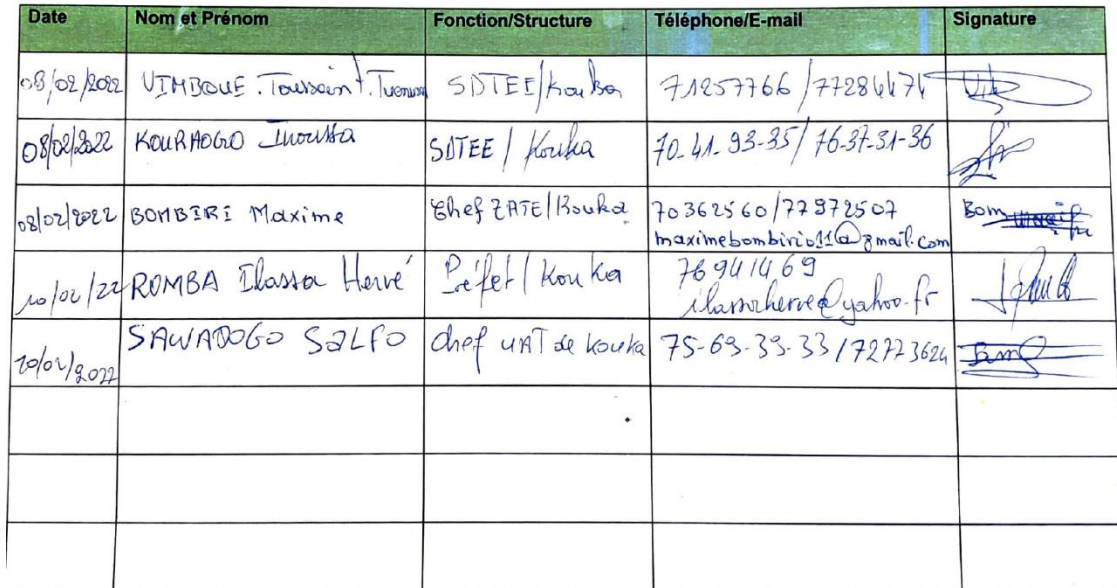 Date Nom et Prénom Fonction/Structure Téléphone/E-mail Signature
08/02/2022 VIMBOUE Toussaint SDTEE/Kouka 71257766/77284474
08/02/2022 KOURAOGO Inoussa SDTEE/Kouka 70-41-93-35/76-37-31-36
08/02/2022 BOMBIRI Maxime Chef ZATE/Kouka 70362560/77972507
maximebombirio11@gmail.com
10/02/22 ROMBA Ilassa Hervé Préfet/Kouka 76941469
ilassaherve@yahoo.fr
SAWADOGO SALFO chef UAT de Kouka 75-69-39-33/72773624